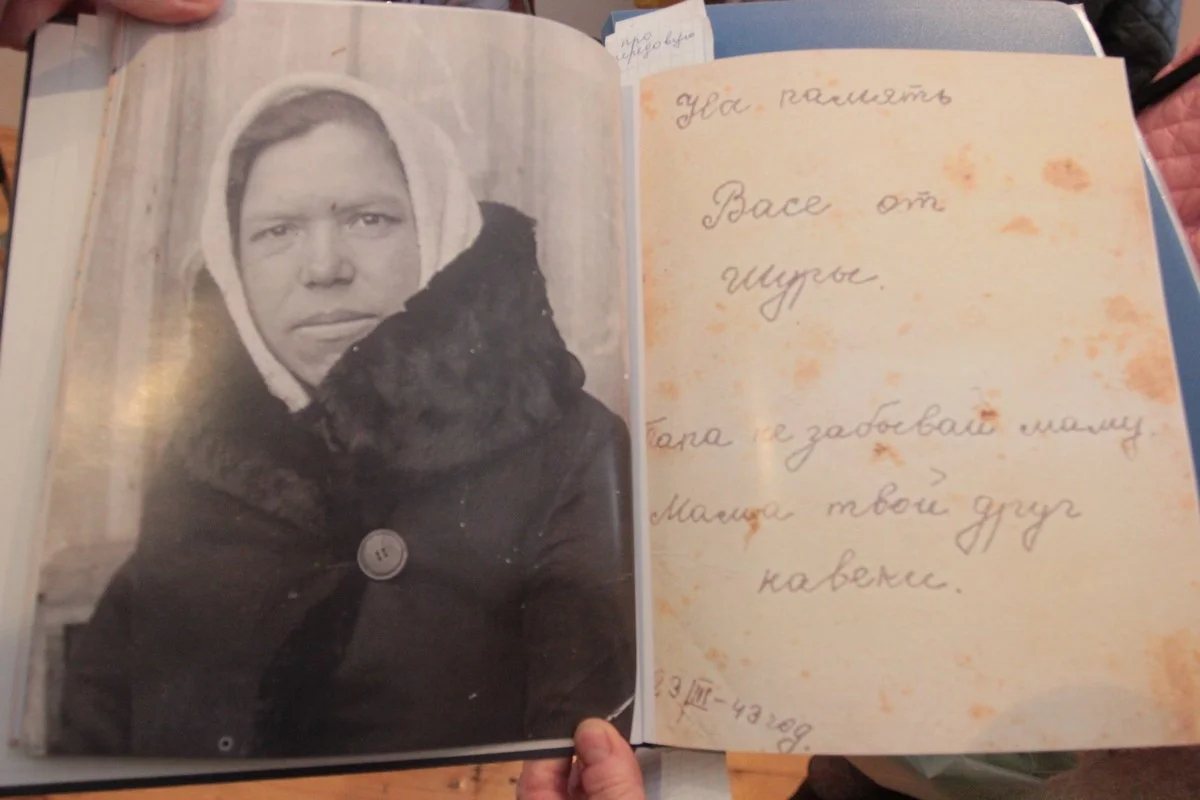 про
передовую
На память
Васе от
Шуры.
Папа не забывай маму.
Мама твой друг
навеки.
23/III-43 год.